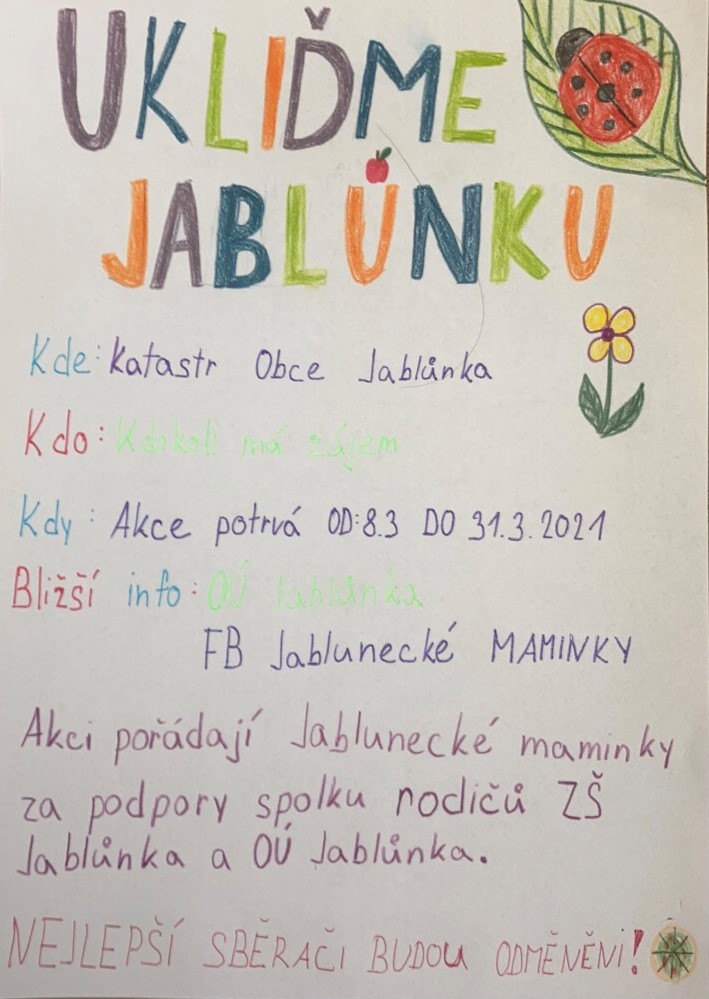 UKLIĎME
JABLŮNKU
Kde: Katastr Obce Jablůnka
Kdo: Kdokoli má zájem
Kdy: Akce potrvá OD:8.3 DO 31.3.2021
Bližší info: OÚ Jablůnka
FB Jablunecké MAMINKY
Akci pořádají Jablunecké maminky
za podpory spolku rodičů ZŠ
Jablůnka a OÚ Jablůnka.
NEJLEPŠÍ SBĚRAČI BUDOU ODMĚNĚNI!